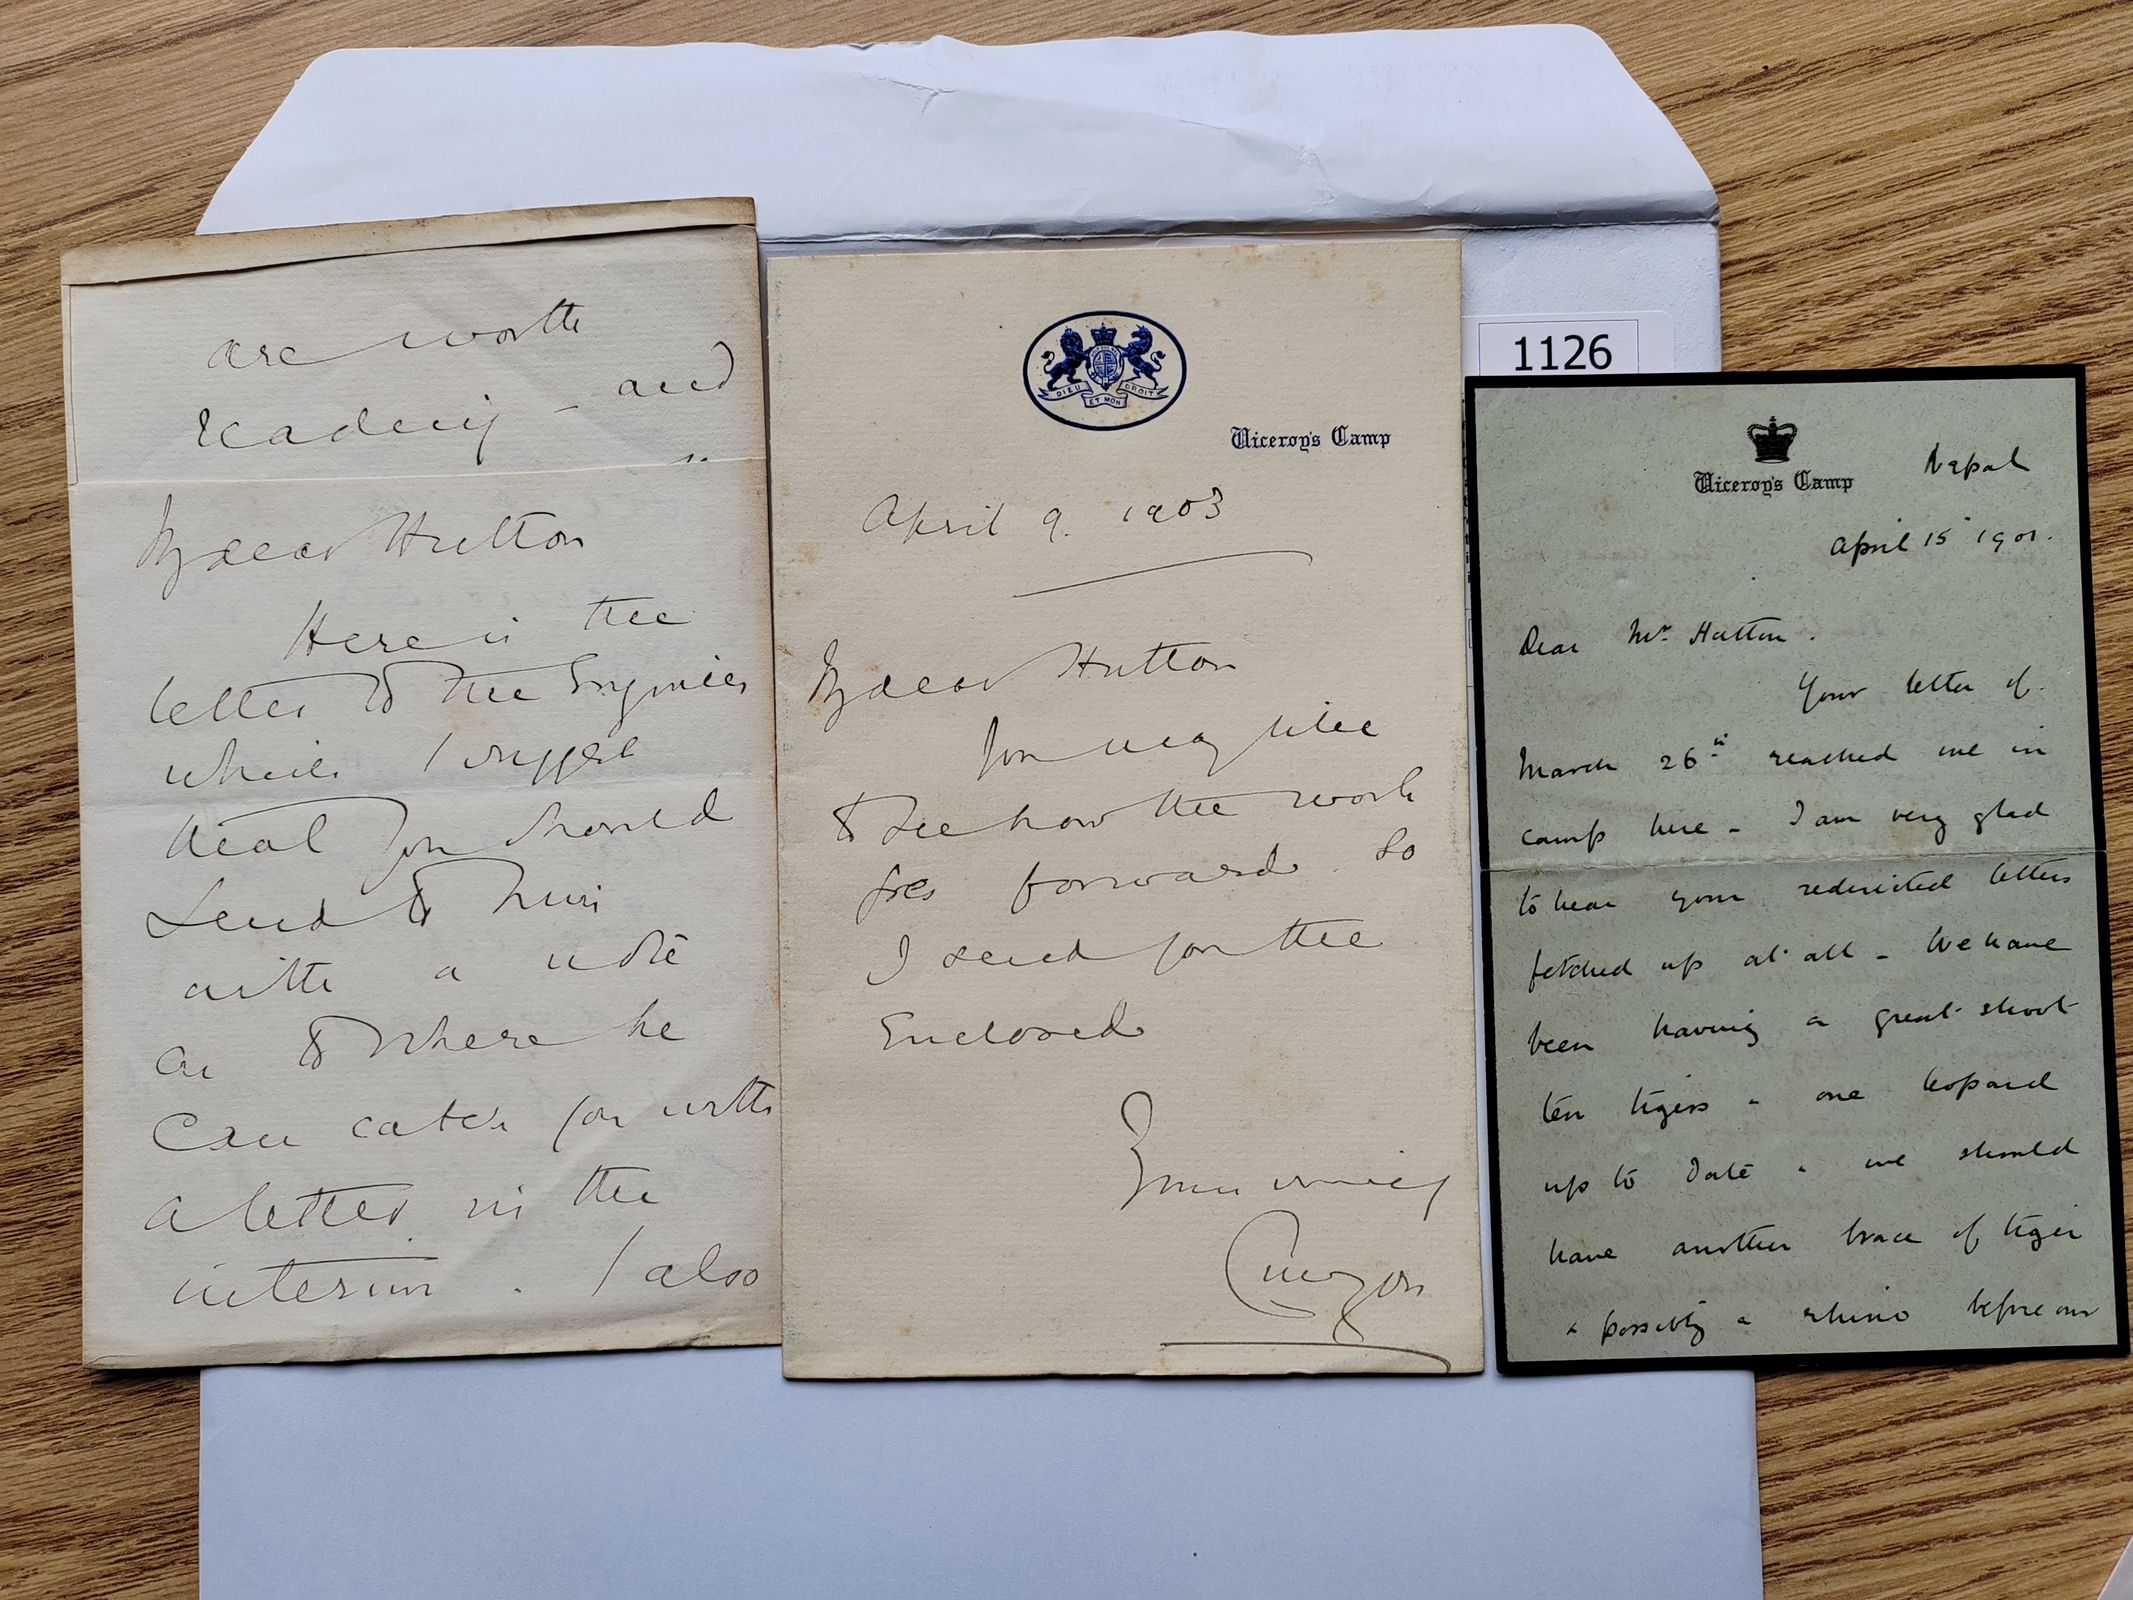 are worth
reading - and
My dear Hutton
Here is the
letter to the Engineer
which I suggest
that you should
send to him
with a note
as to where he
can catch you with
a letter in the
interim. I also
DIEU ET MON DROIT
Viceroy's Camp
April 9. 1903
My dear Hutton
You may like
to see how the work
goes forward. So
I send you the
enclosed
Yours
Curzon
1126
Viceroy's Camp
Nepal
April 15 1901.
Dear Mr. Hutton.
Your letter of
March 26th reached me in
camp here - I am very glad
to hear your redirected letters
fetched up at all - We have
been having a great shoot
ten tigers - one leopard
up to date - we should
have another brace of tiger
& possibly a rhino before our